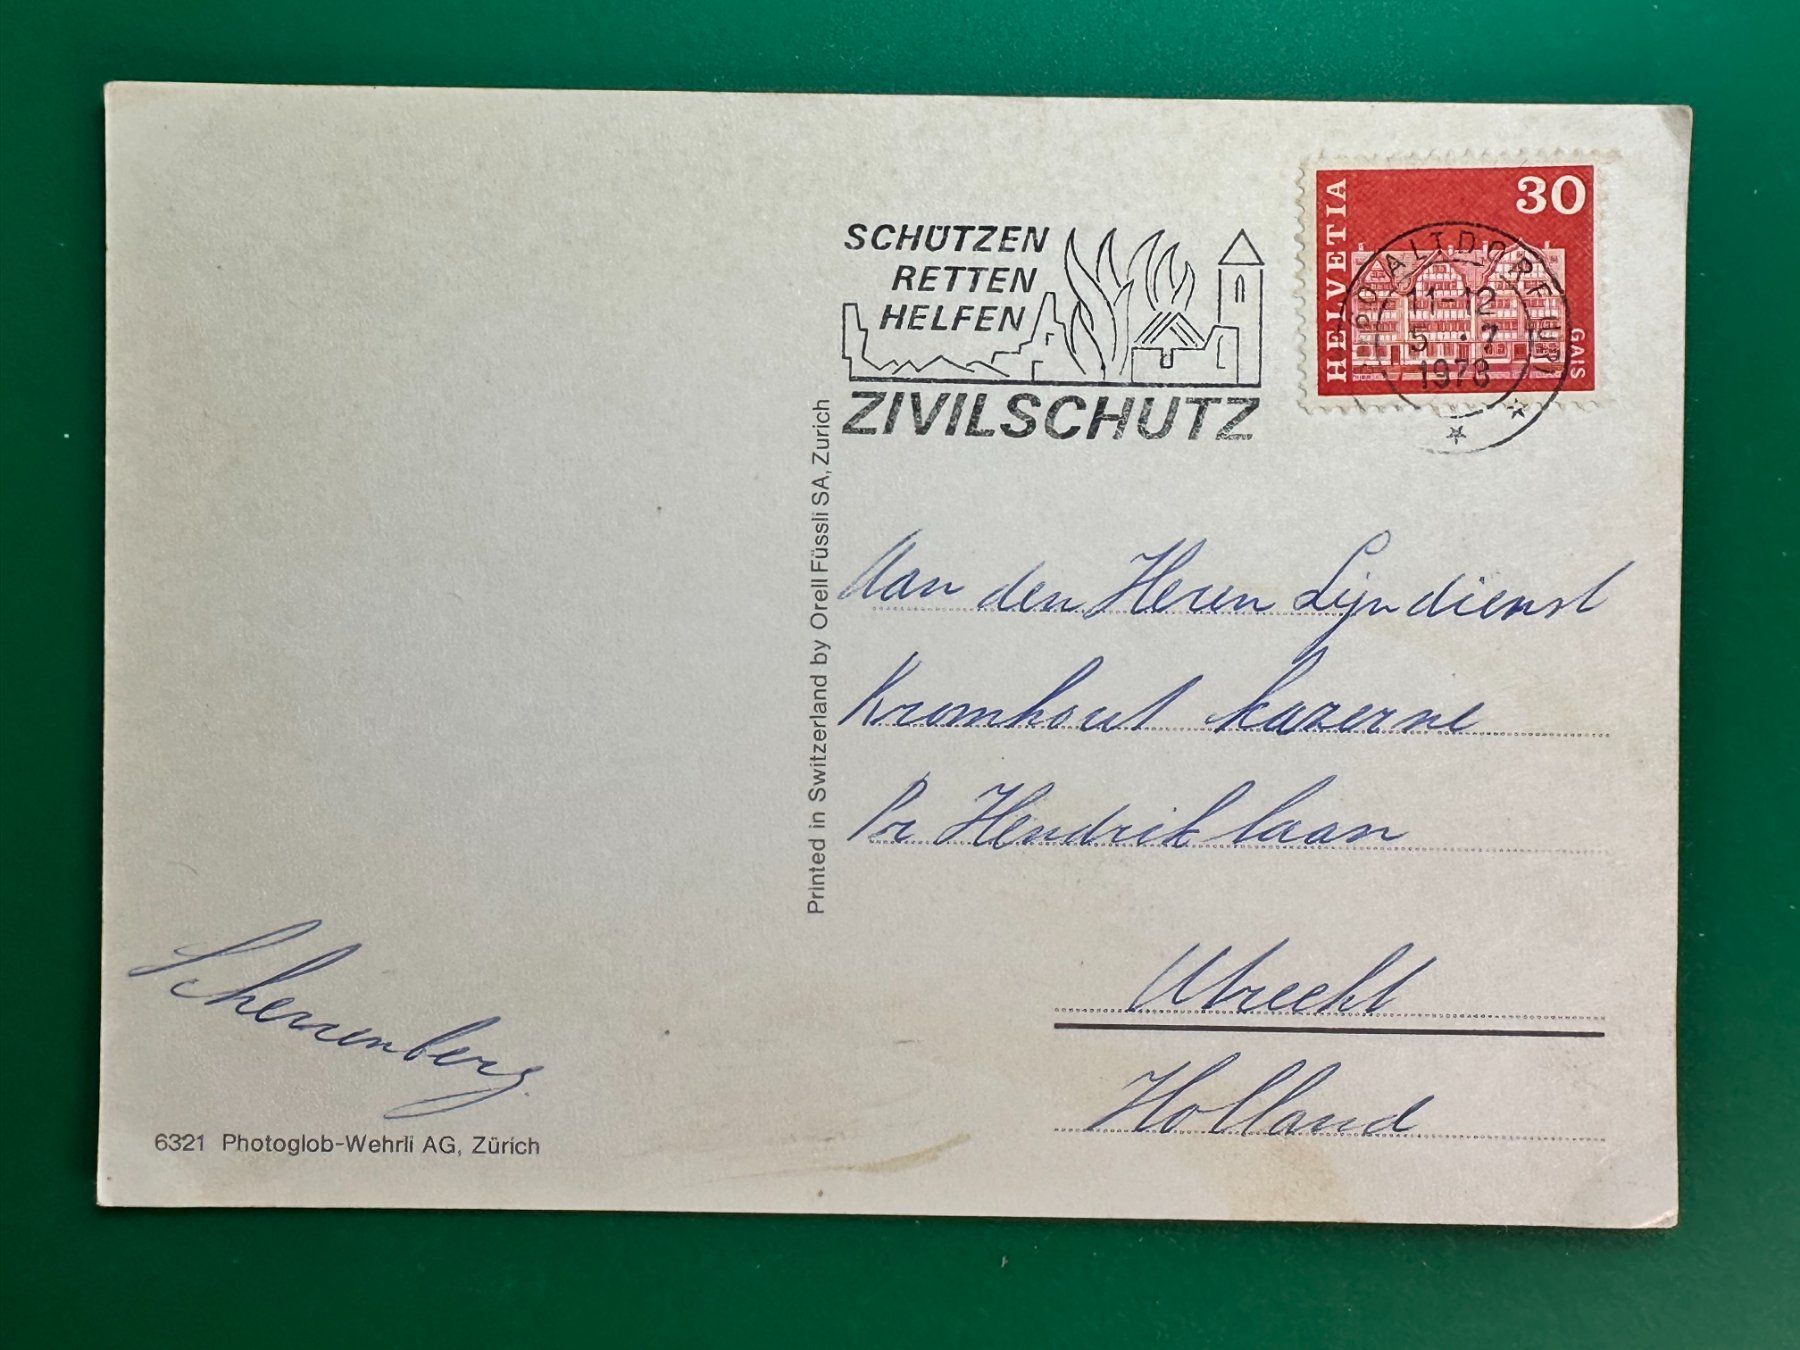 SCHÜTZEN
RETTEN
HELFEN
ZIVILSCHUTZ
HELVETIA
30
GAIS
6460 ALTDORF (UR)
11-12
5.-7
1973
Printed in Switzerland by Orell Füssli SA, Zurich
Aan den Heren Lijndienst
Kromhout kazerne
Pr Hendrik laan
Utrecht
Holland
Scherrenberg
6321 Photoglob-Wehrli AG, Zürich